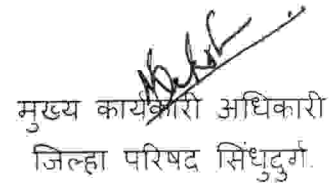 मुख्य कार्यकारी अधिकारी
जिल्हा परिषद सिंधुदुर्ग.